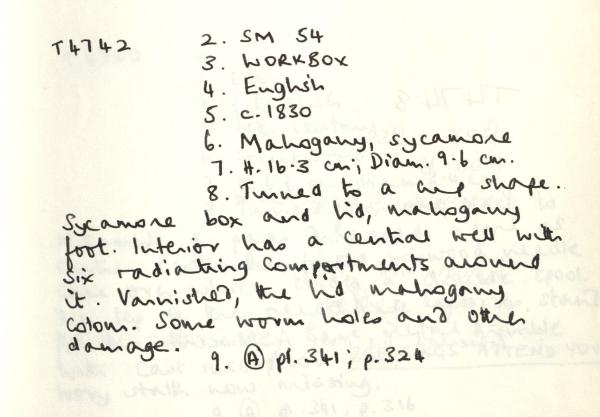 T4742 2. SM 54
3. WORKBOX
4. English
5. c. 1830
6. Mahogany, sycamore
7. H. 16.3 cm; Diam. 9.6 cm.
8. Turned to a cup shape.
Sycamore box and lid, mahogany
foot. Interior has a central well with
six radiating compartments around
it. Varnished, the lid mahogany
colour. Some worm holes and other
damage.
9. Ⓐ pl. 341; p. 324